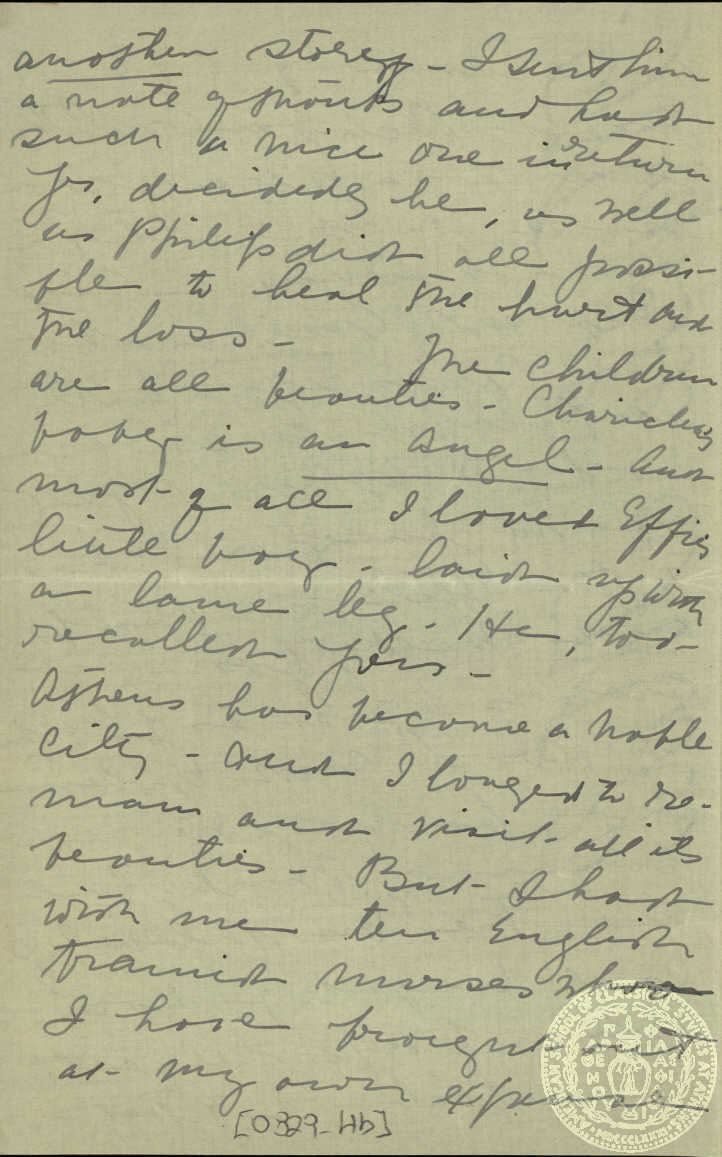 another story - I sent him
a note of thanks and had
such a nice one in return
Yes, decidedly he, as well
as Philip did all possi-
ble to heal the hurt and
the loss - The children
are all beauties - Chariclea's
baby is an angel - And
most of all I loved Effie's
little boy - laid up with
a lame leg. He, too -
recalled Yours -
Athens has become a noble
city - and I longed to re-
main and visit all its
beauties - But I had
with me ten English
trained nurses whom
I have brought out
at my own expense
[0329-Hb]
AMERICAN SCHOOL OF CLASSICAL STUDIES AT ATHENS
MDCCCLXXXI